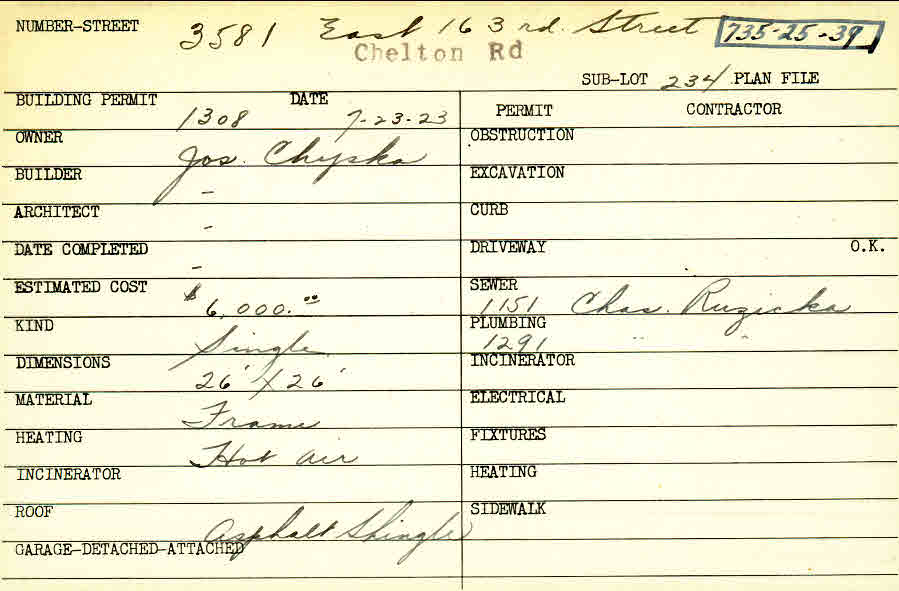 NUMBER-STREET 3581 East 163rd. Street 735-25-39
Chelton Rd
SUB-LOT 234 PLAN FILE
BUILDING PERMIT 1308 DATE 7-23-23
PERMIT CONTRACTOR
OWNER Jos. Chypka
OBSTRUCTION
BUILDER -
EXCAVATION
ARCHITECT -
CURB
DATE COMPLETED -
DRIVEWAY O.K.
ESTIMATED COST $6,000.00
SEWER 1151 Chas. Ruzicka
KIND Single
PLUMBING 1291 " "
DIMENSIONS 26' X 26'
INCINERATOR
MATERIAL Frame
ELECTRICAL
HEATING Hot air
FIXTURES
INCINERATOR
HEATING
ROOF Asphalt Shingle
SIDEWALK
GARAGE-DETACHED-ATTACHED